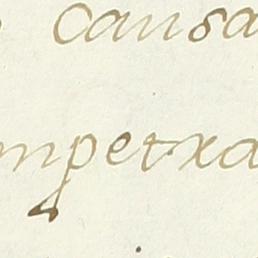 causa
mpetra